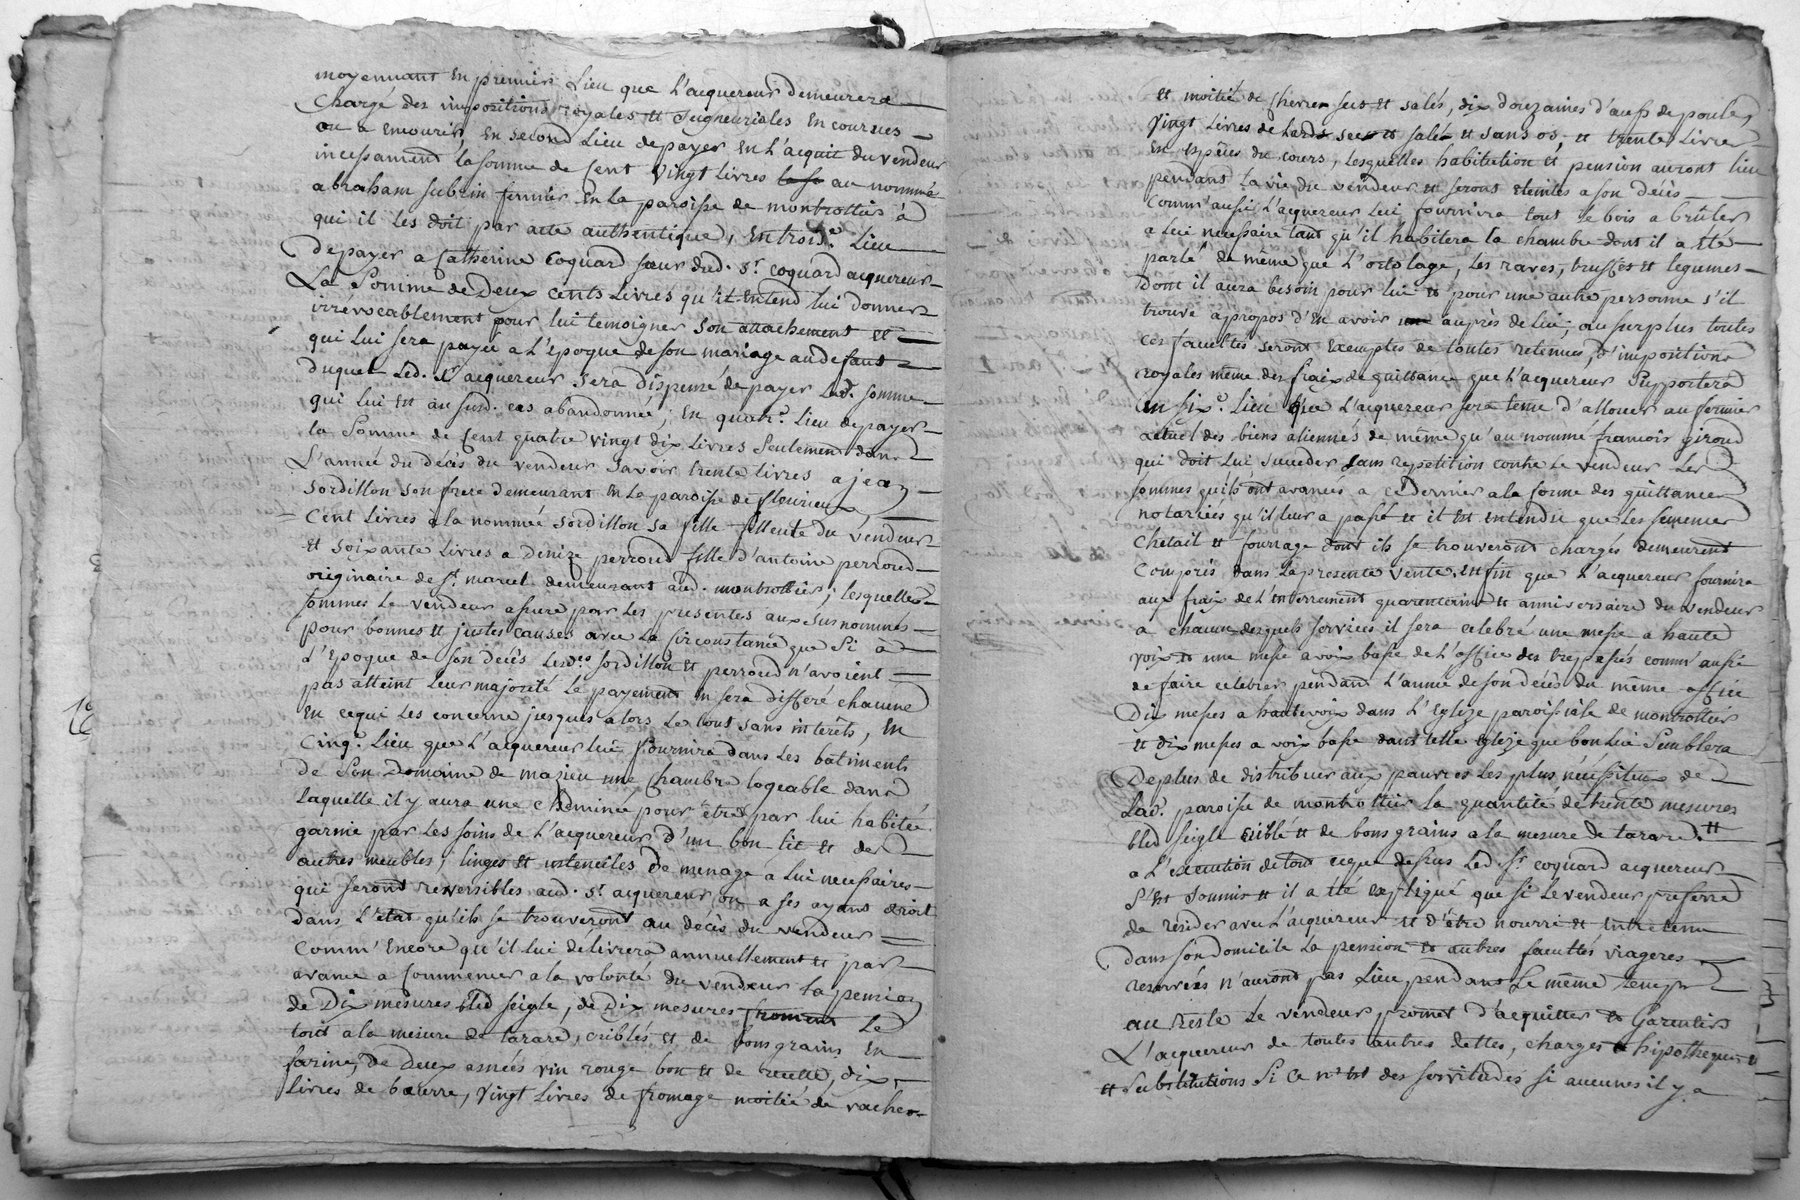 moyennant en premier Lieu que L'acquereur demeurera
Chargé des impositions royales et Seigneuriales en courues
ou a encourir, en second Lieu de payer en L'acquit du vendeur
incessament la somme de Cent vingt Livres au nommé
abraham subrin fermier en la paroisse de montrottier à
qui il les doit par acte authentique, en trois.e Lieu
de payer a Catherine Coquard sœur dud. Sr. coquard acquereur
La Somme de Deux cents Livres qu'il entend lui donner
irrévocablement pour lui temoigner son attachement et
qui Lui sera payée a L'epoque de son mariage au defaut
duquel Led. Sr. acquereur sera dispensé de payer Lad. somme
qui lui est au susd. cas abandonnée; en quatr.e Lieu de payer
la Somme de Cent quatre vingt dix Livres Seulement dans
L'année du décès du vendeur savoir trente livres a jean
sordillon son frere demeurant en la paroisse de fleurieux
Cent Livres à la nommée sordillon sa fille filleule du vendeur
et soixante Livres a denize perroud fille d'antoine perroud
originaire de St. marcel demeurant aud. montrottier; lesquelles
sommes Le vendeur assure par les presentes aux susnommés
pour bonnes et justes causes avec La circonstance que Si à
L'epoque de son décès Lesd.es sordillon et perroud n'avoient
pas atteint leur majorité Le payement en sera differé chacune
en cequi Les concerne jusques alors Le tout sans intérêts, en
Cinq.e Lieu que L'acquereur lui fournira dans les bâtiments
de Son Domaine de mazieu une Chambre logeable dans
laquelle il y aura une cheminée pour être par lui habitée
garnie par Les soins de L'acquereur d'un bon lit et de
autres meubles, linges et ustenciles de menage à lui necessaires
qui seront reversibles aud. Sr. acquereur ou a ses ayant droit
dans L'état qu'ils se trouveront au décès du vendeur
Comm' encore qu'il lui délivrera annuellement et par
avance a Commencer a la volonté du vendeur la pension
de Dix mesures bled seigle, de Dix mesures froment Le
tout a la mesure de tarare, criblés et de bons grains en
farine, de Deux asnées vin rouge bon et de recette, dix
Livres de beurre, vingt Livres de fromage moitié de vaches
et moitié de Chevres secs et salés, dix douzaines d'œufs de poules
vingt Livres de lard sec et salé et sans os, et trente Livres
en espèces du cours, Lesquelles habitation et pension auront lieu
pendant la vie du vendeur et seront eteintes a son décès
Comm' aussi L'acquereur lui fournira tout le bois a brûler
a Lui necessaire tant qu'il habitera la chambre dont il a été
parlé de même que L'ortolage, les raves, truffes et legumes
Dont il aura besoin pour lui et pour une autre personne s'il
trouve apropos d'en avoir auprès de lui; au surplus toutes
ces facultés seront exemptes de toutes retenues, d'impositions
royales même des fraix de quittance que L'acquereur Supportera
en six.e Lieu que L'acquereur sera tenu d'allouer au fermier
actuel des biens alienés de même qu'au nommé francois giroud
qui doit Lui succeder sans repetition contre Le vendeur Les
sommes qu'ils ont avancés a ce Dernier a la forme des quittances
notariées qu'il leur a passé et il est entendu que Les semences
Chetail et fourrage dont ils se trouveront chargés demeurent
Compris dans la presente vente. enfin que L'acquereur fournira
aux fraix de L'enterrement quarentaine et anniversaire du vendeur
a chacun desquels services il sera celebré une messe a haute
voix et une messe a voix basse de L'office des trepassés comm' aussi
de faire celebrer pendant L'année de son décès du même office
Dix messes a haute voix dans L'Eglize paroissiale de montrottier
et dix messes a voix basse dans telle eglize que bon Lui Semblera
De plus de distribuer aux pauvres Les plus nécessiteux de
Lad. paroisse de montrottier la quantité de trente mesures
bled seigle criblé et de bons grains a la mesure de tarare. et
a L'execution de tout ceque dessus Led. Sr. coquard acquereur
s'est soumis et il a été expliqué que si Le vendeur preferre
de resider avec L'acquereur et d'être nourri et entretenu
dans son domicile La pension et autres facultés viageres
reservées n'auront pas Lieu pendant Le même temps
au reste Le vendeur promet d'acquitter et Garentir
L'acquereur de toutes autres dettes, charges hipotheques
et Substitutions Si ce n'est des servitudes si aucunes il y a